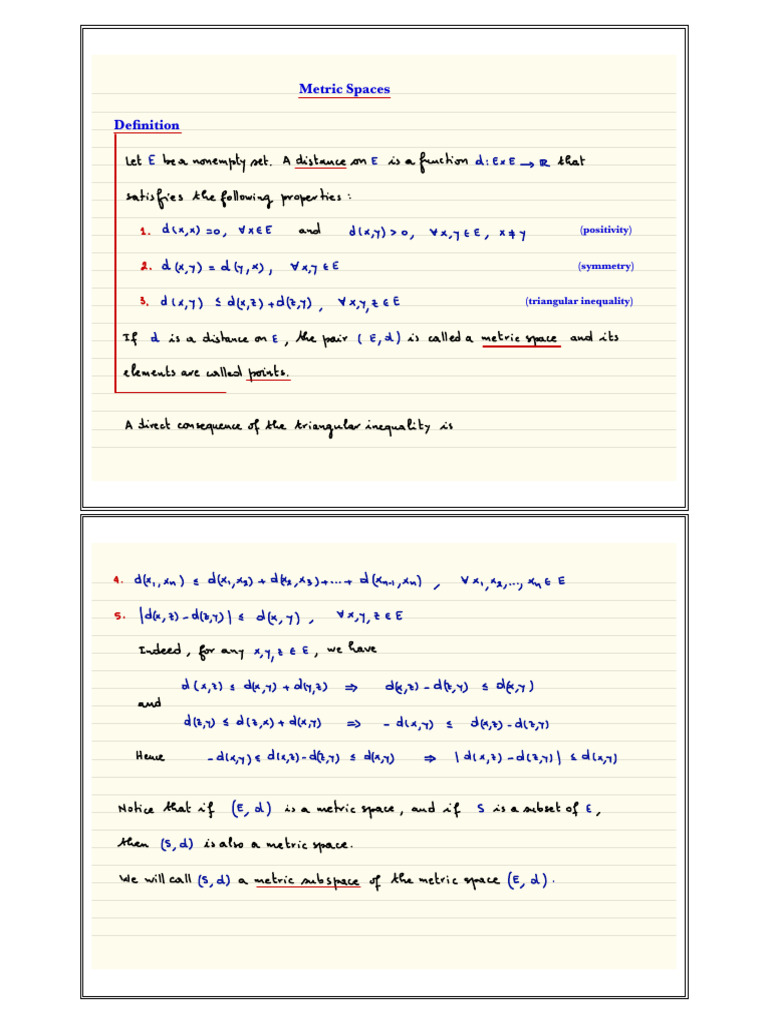 Metric Spaces
Definition
Let E be a nonempty set. A distance on E is a function d: E×E → ℝ that
satisfies the following properties:
1. d(x,x) = 0, ∀x∈E and d(x,y) > 0, ∀x,y∈E, x≠y (positivity)
2. d(x,y) = d(y,x), ∀x,y∈E (symmetry)
3. d(x,y) ≤ d(x,z) + d(z,y), ∀x,y,z∈E (triangular inequality)
If d is a distance on E, the pair (E,d) is called a metric space and its
elements are called points.
A direct consequence of the triangular inequality is
4. d(x₁,xₙ) ≤ d(x₁,x₂) + d(x₂,x₃) + ... + d(xₙ₋₁,xₙ), ∀x₁,x₂,...,xₙ∈E
5. |d(x,z) - d(z,y)| ≤ d(x,y), ∀x,y,z∈E
Indeed, for any x,y,z∈E, we have
d(x,z) ≤ d(x,y) + d(y,z) ⇒ d(x,z) - d(z,y) ≤ d(x,y)
and
d(z,y) ≤ d(z,x) + d(x,y) ⇒ - d(x,y) ≤ d(x,z) - d(z,y)
Hence -d(x,y) ≤ d(x,z) - d(z,y) ≤ d(x,y) ⇒ |d(x,z) - d(z,y)| ≤ d(x,y)
Notice that if (E,d) is a metric space, and if S is a subset of E,
then (S,d) is also a metric space.
We will call (S,d) a metric subspace of the metric space (E,d).